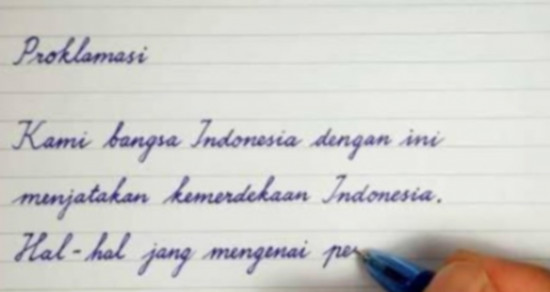 Proklamasi
Kami bangsa Indonesia dengan ini
menjatakan kemerdekaan Indonesia.
Hal-hal jang mengenai pe